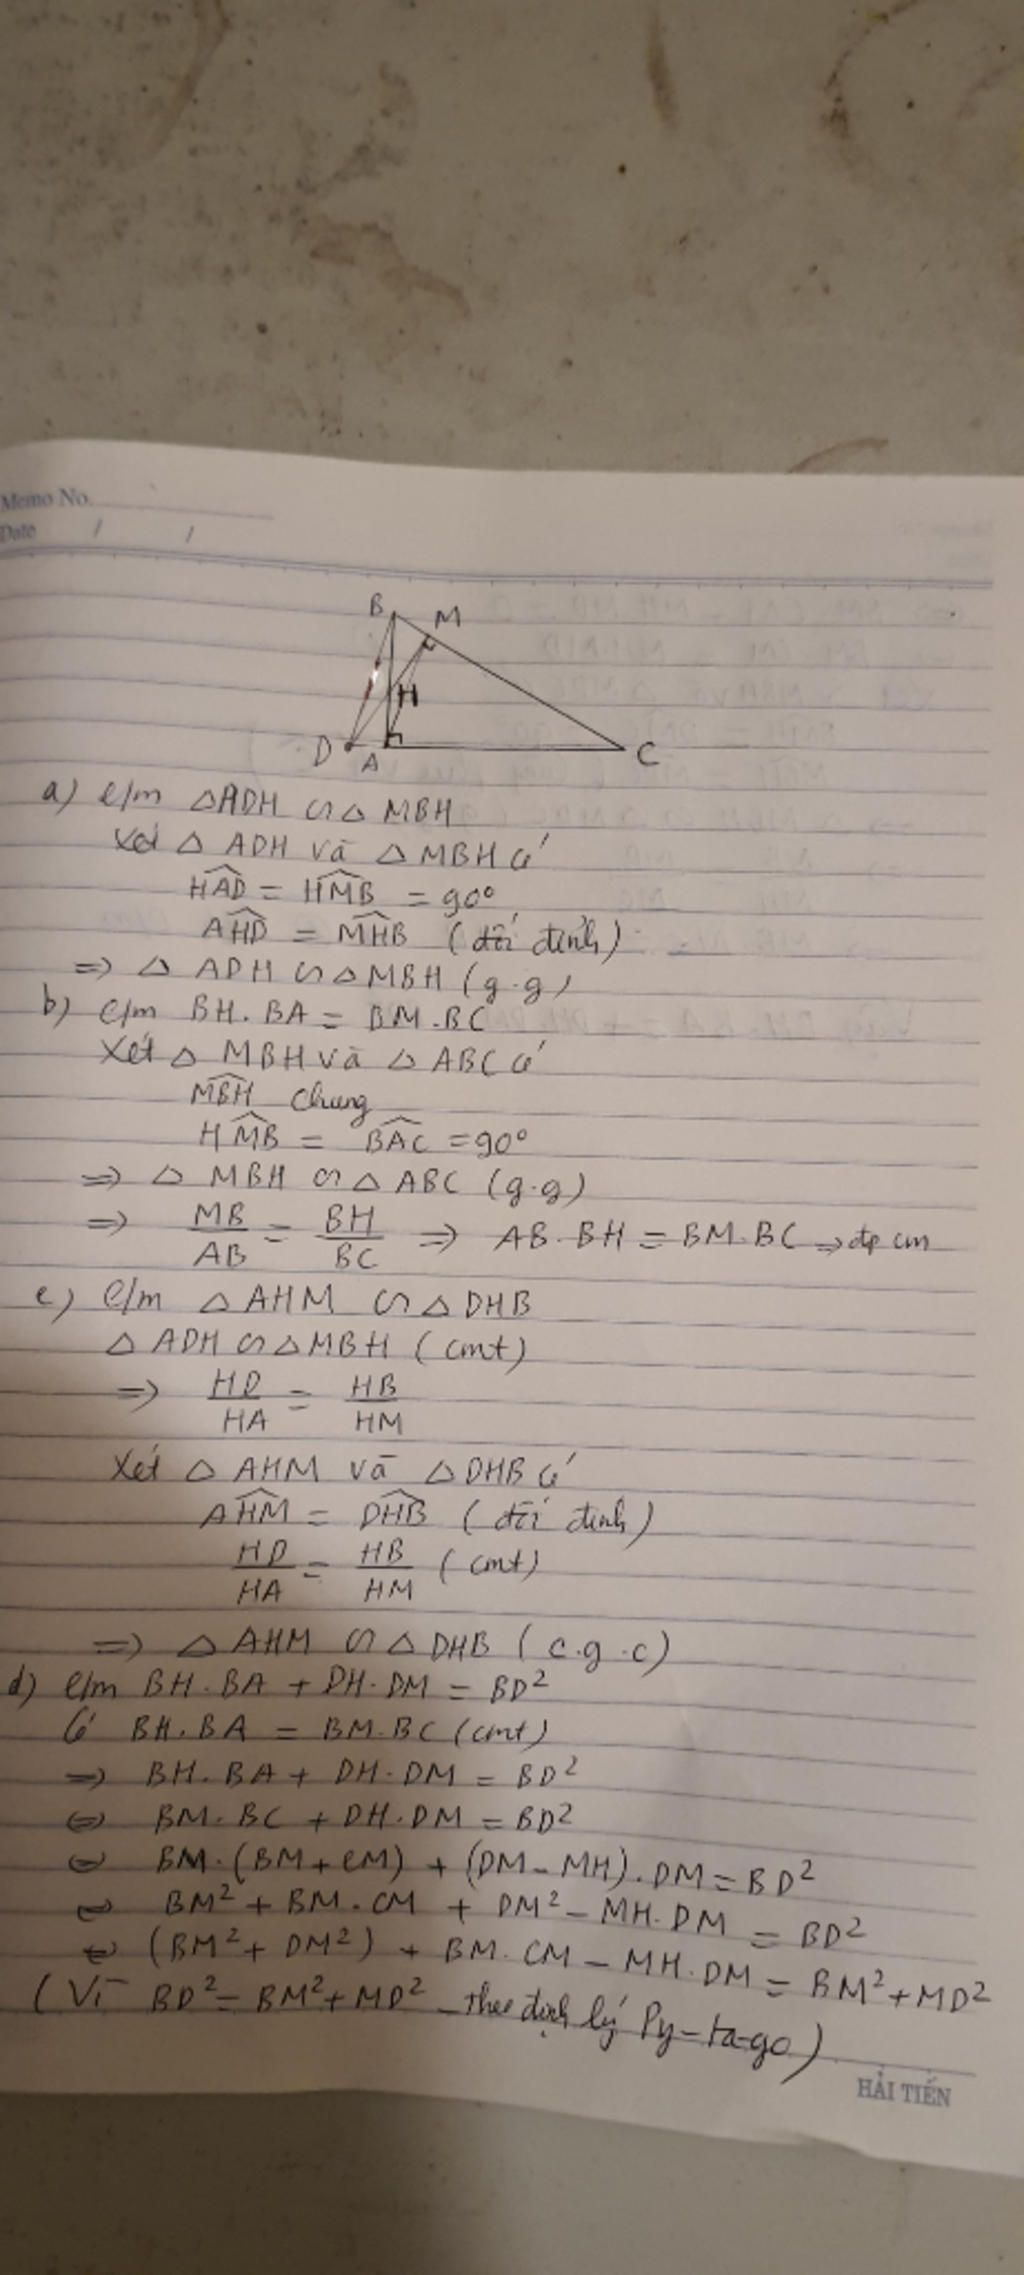 Memo No.
Date / /
B M
H
D A C
a) c/m △ADH ∽ △MBH
Xét △ ADH và △ MBH có
HAD = HMB = 90°
AHD = MHB (đối đỉnh)
=> △ ADH ∽ △MBH (g.g)
b) c/m BH.BA = BM.BC
Xét △ MBH và △ ABC có
MBH chung
HMB = BAC = 90°
=> △ MBH ∽ △ ABC (g.g)
=> MB/AB = BH/BC => AB.BH = BM.BC => đpcm
c) c/m △AHM ∽ △DHB
△ ADH ∽ △MBH (cmt)
=> HD/HA = HB/HM
Xét △ AHM và △DHB có
AHM = DHB (đối đỉnh)
HD/HA = HB/HM (cmt)
=> △ AHM ∽ △DHB (c.g.c)
d) c/m BH.BA + DH.DM = BD²
Có BH.BA = BM.BC (cmt)
=> BH.BA + DH.DM = BD²
<=> BM.BC + DH.DM = BD²
<=> BM.(BM+CM) + (DM-MH).DM = BD²
<=> BM² + BM.CM + DM² - MH.DM = BD²
<=> (BM² + DM²) + BM.CM - MH.DM = BM² + MD²
(Vì BD² = BM² + MD² theo định lý Py-ta-go)
HẢI TIẾN